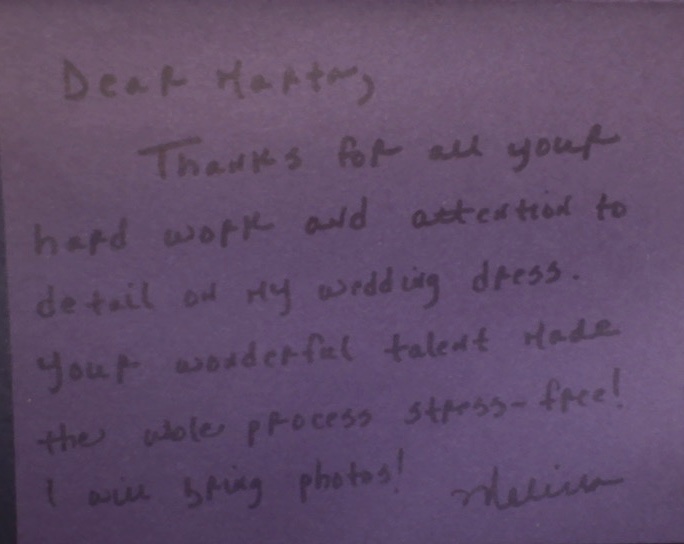 Dear Marta,
Thanks for all your
hard work and attention to
detail on my wedding dress.
Your wonderful talent made
the whole process stress-free!
I will bring photos! Melissa